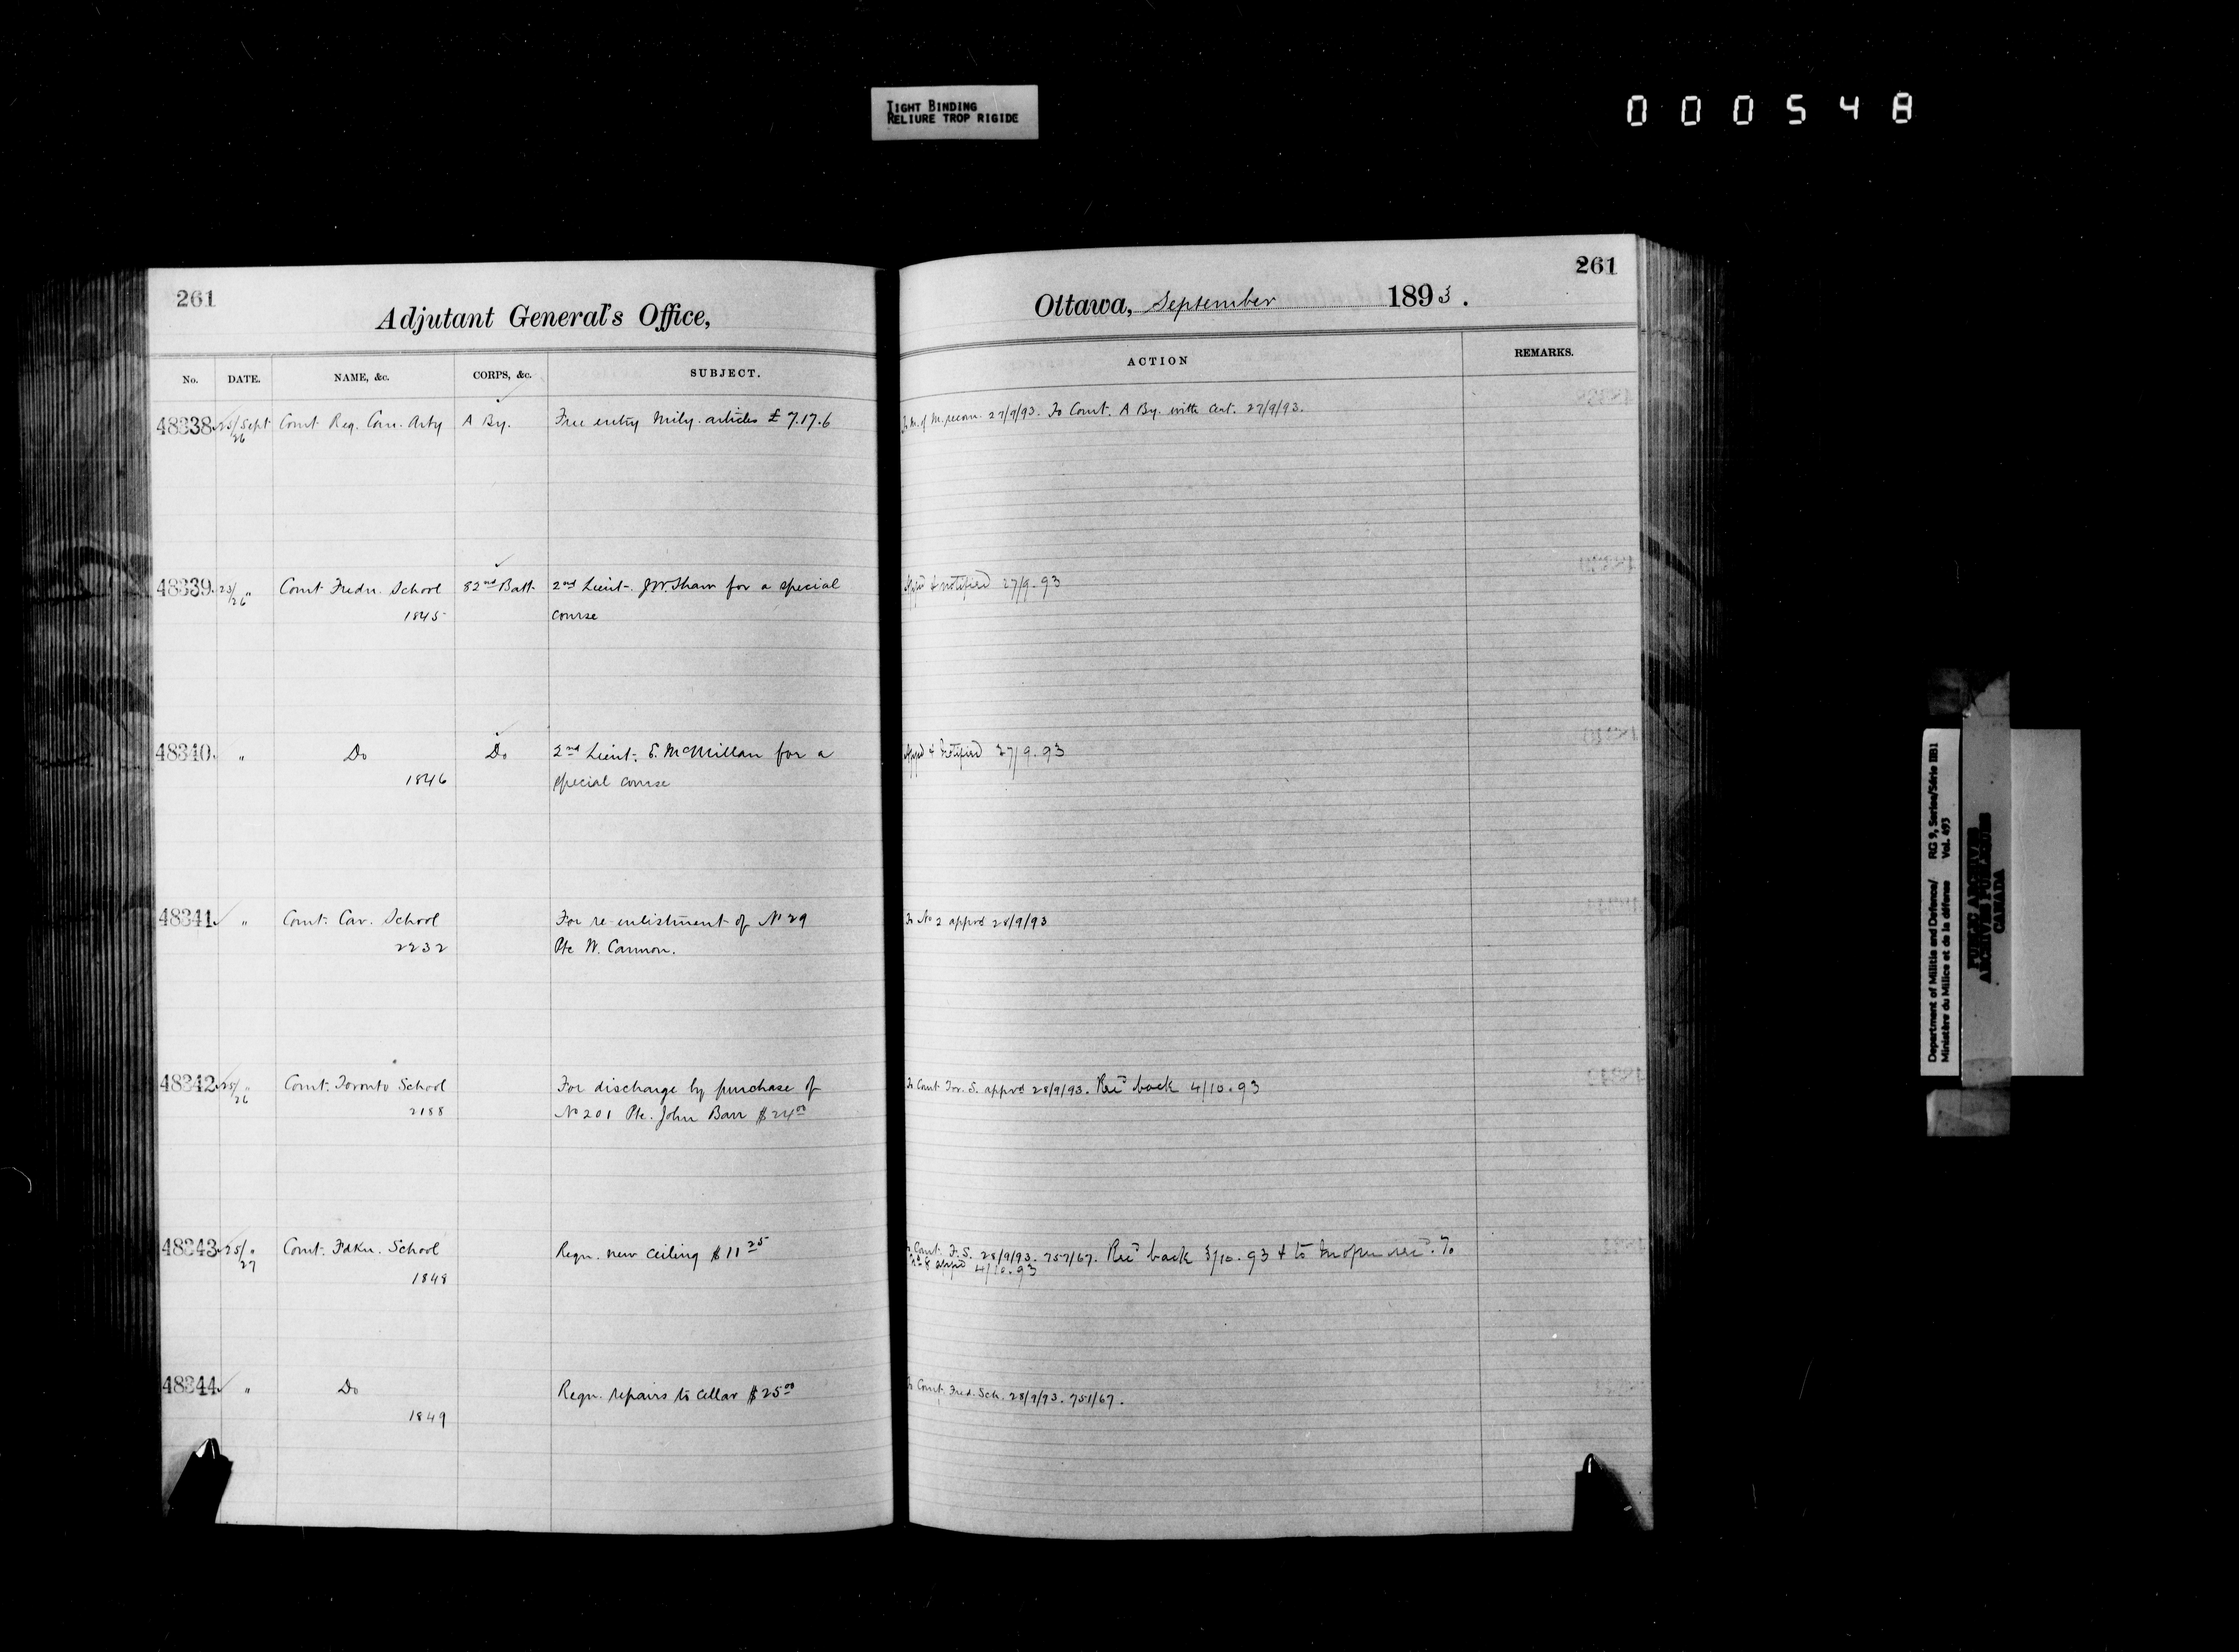 TIGHT BINDING
RELIURE TROP RIGIDE
000548
261
Adjutant General's Office,
No. DATE. NAME, &c. CORPS, &c. SUBJECT.
48338 25/26 Sept Comt Reg. Can. Arty A By. Free entry Mily. articles £7.17.6
48339 25/26 " Comt Fredn. School 82nd Batt. 2nd Lieut. J.W. Shaw for a special
1845 course
48340 " Do Do 2nd Lieut. E. McMillan for a
1846 special course
48341 " Comt. Cav. School For re-enlistment of No 29
2232 Pte W. Cannon.
48342 25/26 " Comt. Toronto School For discharge by purchase of
2188 No 201 Pte. John Barr $24.00
48343 25/27 " Comt. Fdkn. School Reqn. new ceiling $11.25
1848
48344 " Do Reqn. repairs to cellar $25.00
1849
261
Ottawa, September 1893.
ACTION REMARKS.
To M. of M. recom. 27/9/93. To Comt. A By. with Cert. 27/9/93.
Appd & notified 27/9.93
Appd & notified 27/9.93
To No 2 apprd 28/9/93
To Comt Tor. S. apprd 28/9/93. Recd back 4/10.93
To Comt. F. S. 28/9/93. 757/67. Recd back 3/10.93 & to
appd 4/10.93
To Comt. Fred. Sch. 28/9/93. 751/67.
Department of Militia and Defence/ RG 9, Series/Série IIB1
Ministère du Milice et de la défense Vol. 493
PUBLIC ARCHIVES
ARCHIVES PUBLIQUES
CANADA